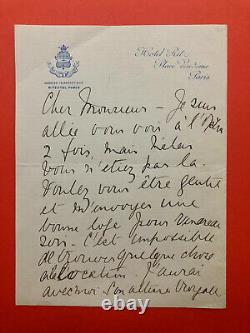 RITZOTEL PARIS
Hotel Ritz
Place Vendôme
Paris
Cher Monsieur - Je suis
allée vous voir à l'Opéra
2 fois, mais hélas
vous n'étiez pas là.
Voulez vous être gentil
et m'envoyer une
bonne loge pour Vendredi
soir - C'est impossible
de trouver quelque chose
à location. J'aurai
avec moi son altesse royale
thecollectibles